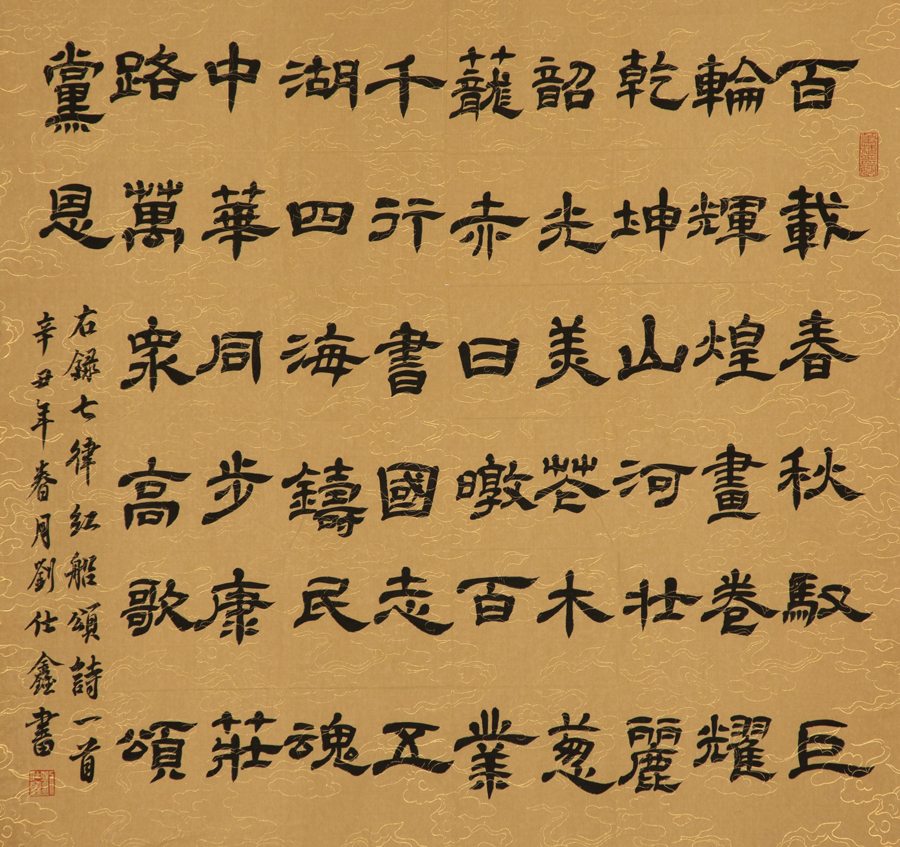 百載春秋馭巨
輪輝煌畫卷耀
乾坤山河壯麗
韶光美花木葱
蘢赤日暾百業
千行書國志五
湖四海鑄民魂
中華同步康莊
路萬衆高歌頌
黨恩
右録七律紅船頌詩一首
辛丑年春月劉仕鑫書